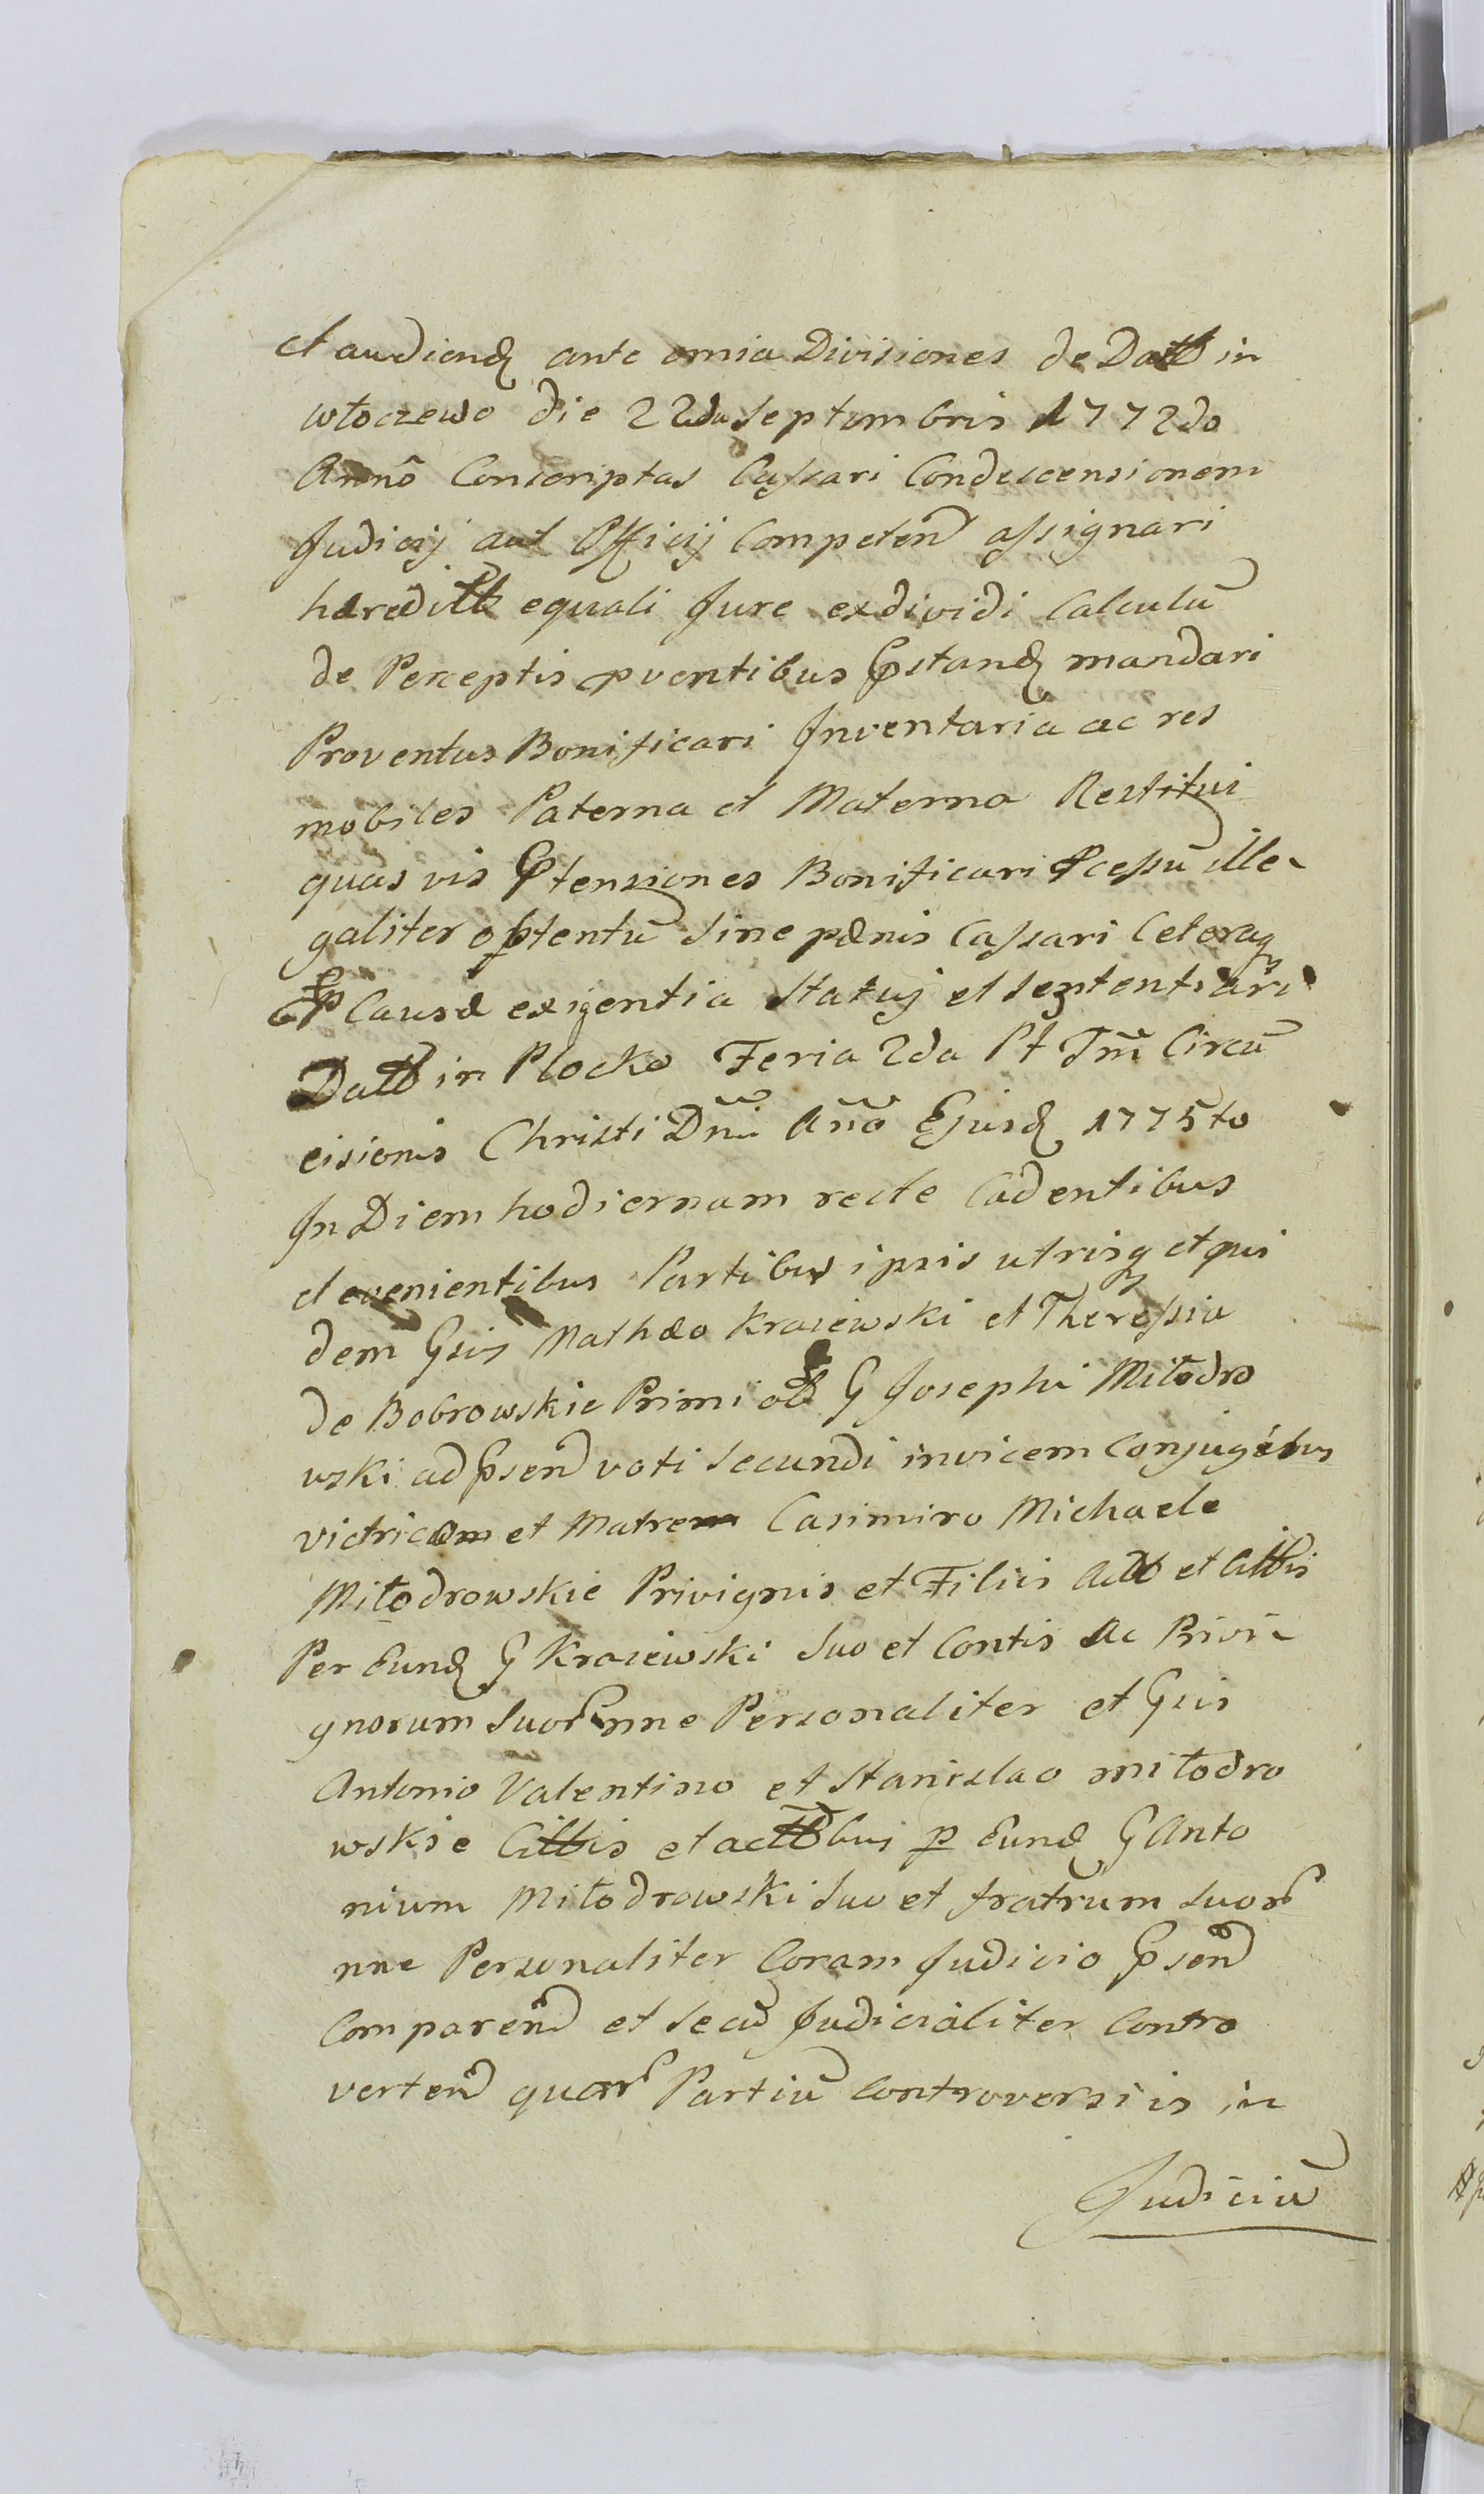 et audiend ante omia Divisiones de Datt in
włoczewo die 22da Septembris 1772do
Annô Conscriptas Cassari Condescensionem
Judicij aut Officij Competen assignari
hæreditt equali Jure exdividi Calculū
de Perceptis pventibus Pstand mandari
Proventus Bonificari Inventaria ac res
mobiles Paterna et Materna Restitui
quas vis Ptensiones Bonificari Pcessū ille-
galiter optentū Sine pænis Cassari Ceteraq
P Causæ exigentia Statuj et Sententiari
Datt in Plocko Feria 2da Pt Tm̄ Circū
cisionis Christi Dn̄i An̄o Ejusd 1775to
In Diem hodiernam recte Cadentibus
et evenientibus Partibus ipsis utrisq et qui
dem Gsis Mathæo Krajewski et Theressia
de Bobrowskie Primi G Josephi Miłodro
wski ad Psen voti Secundi invicem Conjugibus
victricom et Matrem Casimiro Michaele
Miłodrowskie Privignis et Filiis Act et Cittis
Per Eund G Krajewski Suo et Contis Ac Privi-
gnorum Suor nne Personaliter et Gsis
Antonio Valentino et Stanislao miłodro
wskie Cittis et acttbus p Eund G Anto
nium Miłodrowski Suo et fratrum Suor
nne Personaliter Coram Judicio Psen
Comparen et Secū Judicialiter Contro
verten quorr Partiū Controversiis in
Judiciū